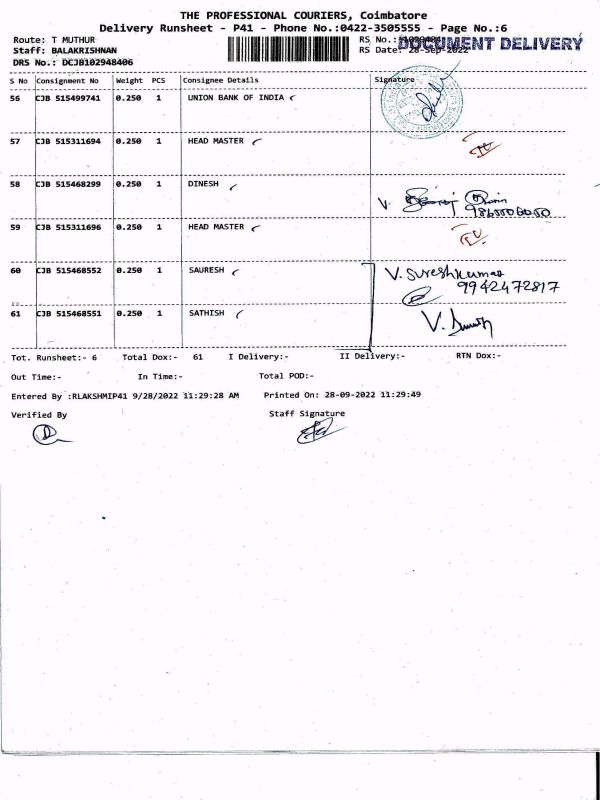 THE PROFESSIONAL COURIERS, Coimbatore
Delivery Runsheet - P41 - Phone No.:0422-3505555 - Page No.:6
Route: T MUTHUR RS No.: DOCUMENT DELIVERY
Staff: BALAKRISHNAN RS Date: 28-Sep-2022
DRS No.: DCJB102948406
S No Consignment No Weight PCS Consignee Details Signature
56 CJB 515499741 0.250 1 UNION BANK OF INDIA
57 CJB 515311694 0.250 1 HEAD MASTER
58 CJB 515468299 0.250 1 DINESH
V.
59 CJB 515311696 0.250 1 HEAD MASTER
60 CJB 515468552 0.250 1 SAURESH V. Sureshkumar
9942472817
61 CJB 515468551 0.250 1 SATHISH V.
Tot. Runsheet:- 6 Total Dox:- 61 I Delivery:- II Delivery:- RTN Dox:-
Out Time:- In Time:- Total POD:-
Entered By :RLAKSHMIP41 9/28/2022 11:29:28 AM Printed On: 28-09-2022 11:29:49
Verified By Staff Signature